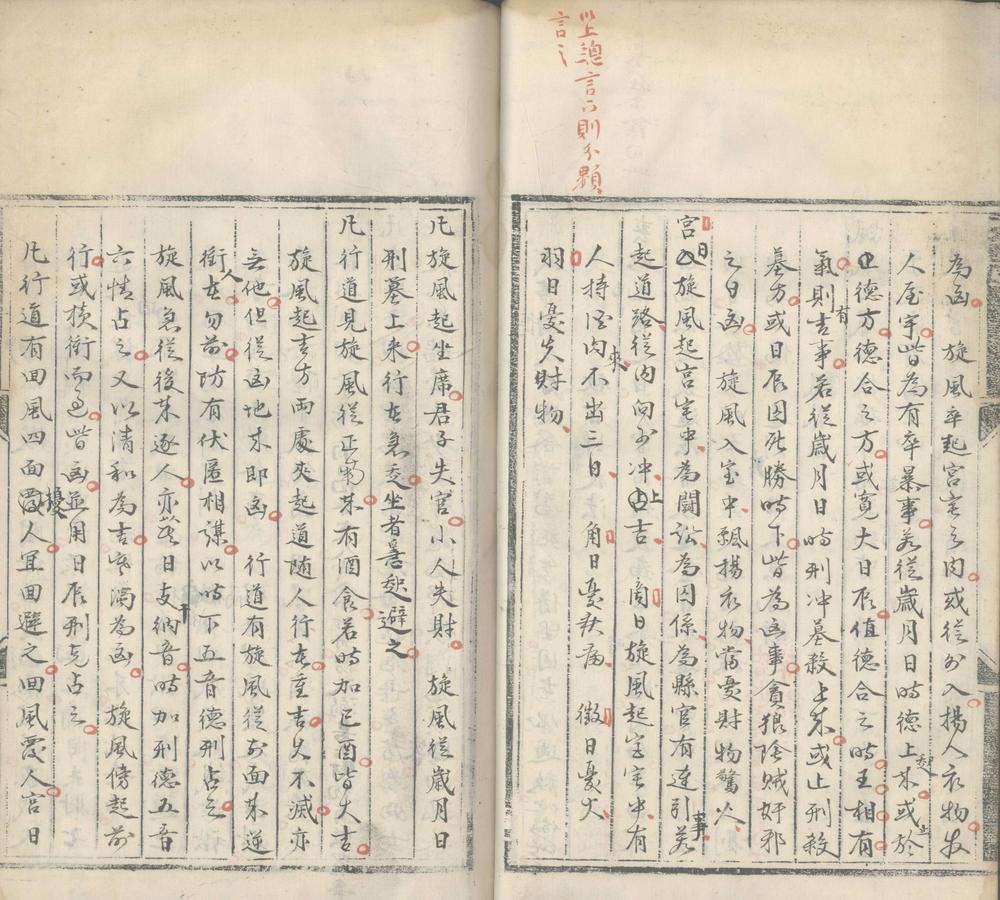 以上總言以下則分類
言之
為凶　旋風卒起宮宅之內或從外入揚人衣物發
人屋宇皆為有卒暴事若從歲月日時德上來或於
止德方德合之方或寬大日辰值德合之時王相有
氣則吉有事若從歲月日時刑冲墓殺上來或止刑殺
墓方或日辰囚死勝時下皆為凶事貪狼陰賊奸邪
之日凶　旋風入室中飄揚衣物當憂財物驚人
宮日旋風起宮宅中為鬪訟為囚係為縣官有連引若事
起道路從內向外冲上吉　商日旋風起宅宅中有
人持酒肉來不出三日　角日憂疾病　徵日憂火
羽日憂失財物
凡旋風起坐席君子失官小人失財　旋風從歲月日
刑墓上來行在急交坐者善趂避之
凡行道見旋風從正前來有酒食若時加已酉皆大吉
旋風起吉方兩處夾起道隨人行在重吉久不滅亦
無他但從凶地來即凶　行道有旋風從前面來逆
衝人在勿前防有伏匿相謀以時下五音德刑占之
旋風急從後來逐人亦然日支干納音時加刑德五音
六情占之又以清和為吉寒濁為凶　旋風傍起前
行或橫衝而過皆凶並用日辰刑克占之
凡行道有回風四面擾人宜回避之回風覆人宮日